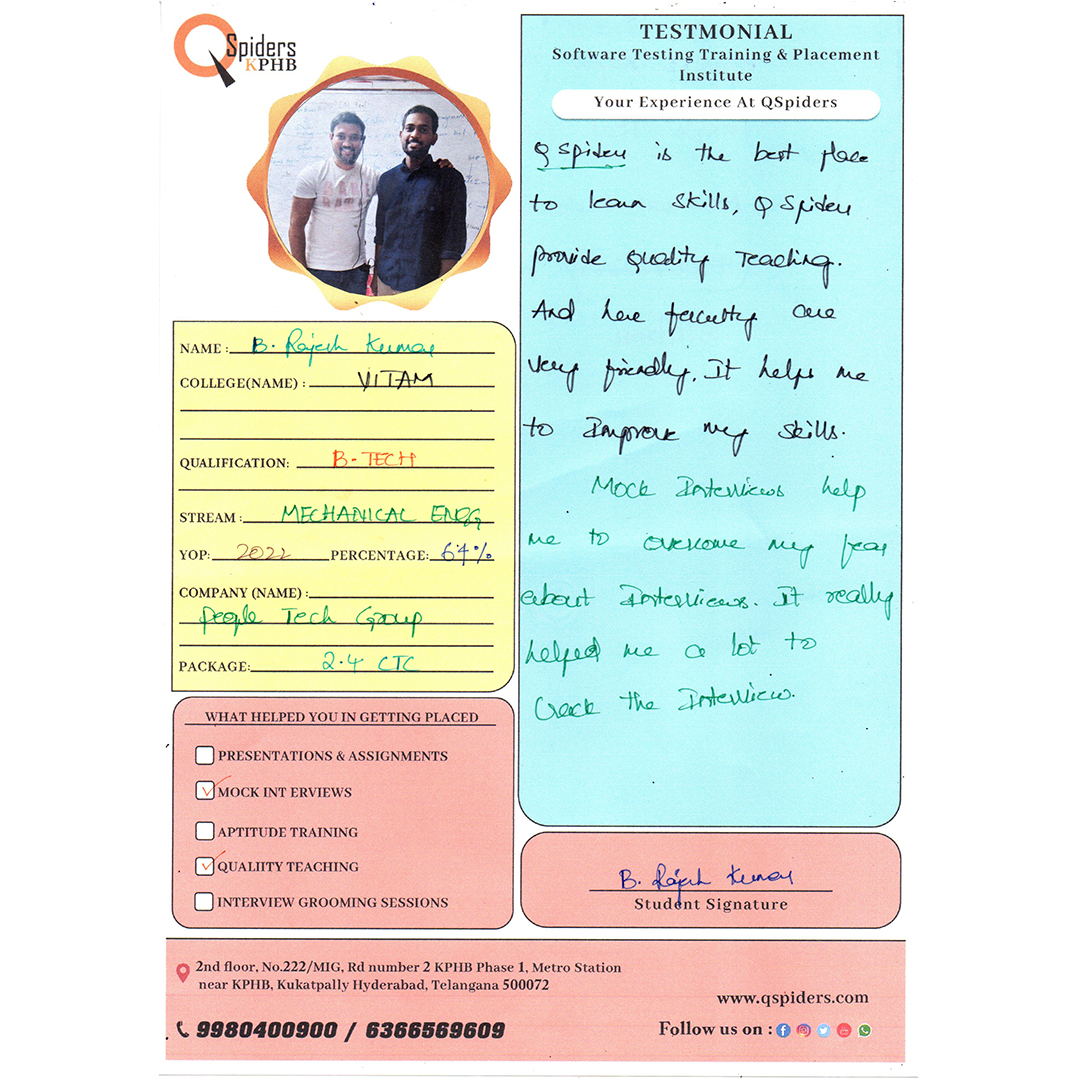 QSpiders
KPHB
NAME : B. Rajesh Kumar
COLLEGE(NAME) : VITAM
QUALIFICATION: B-TECH
STREAM : MECHANICAL ENGG
YOP: 2022 PERCENTAGE: 67%
COMPANY (NAME) :
People Tech Group
PACKAGE: 2.4 CTC
WHAT HELPED YOU IN GETTING PLACED
PRESENTATIONS & ASSIGNMENTS
MOCK INT ERVIEWS
APTITUDE TRAINING
QUALIITY TEACHING
INTERVIEW GROOMING SESSIONS
TESTMONIAL
Software Testing Training & Placement
Institute
Your Experience At QSpiders
Q Spiders is the best place
to learn Skills, Q Spiders
provide quality Teaching.
And here faculty are
very friendly. It helps me
to Improve my skills.
Mock Interviews help
me to overcome my fear
about Interviews. It really
helped me a lot to
Crack the Interview.
B. Rajesh Kumar
Student Signature
2nd floor, No.222/MIG, Rd number 2 KPHB Phase 1, Metro Station
near KPHB, Kukatpally Hyderabad, Telangana 500072
9980400900 / 6366569609
www.qspiders.com
Follow us on :